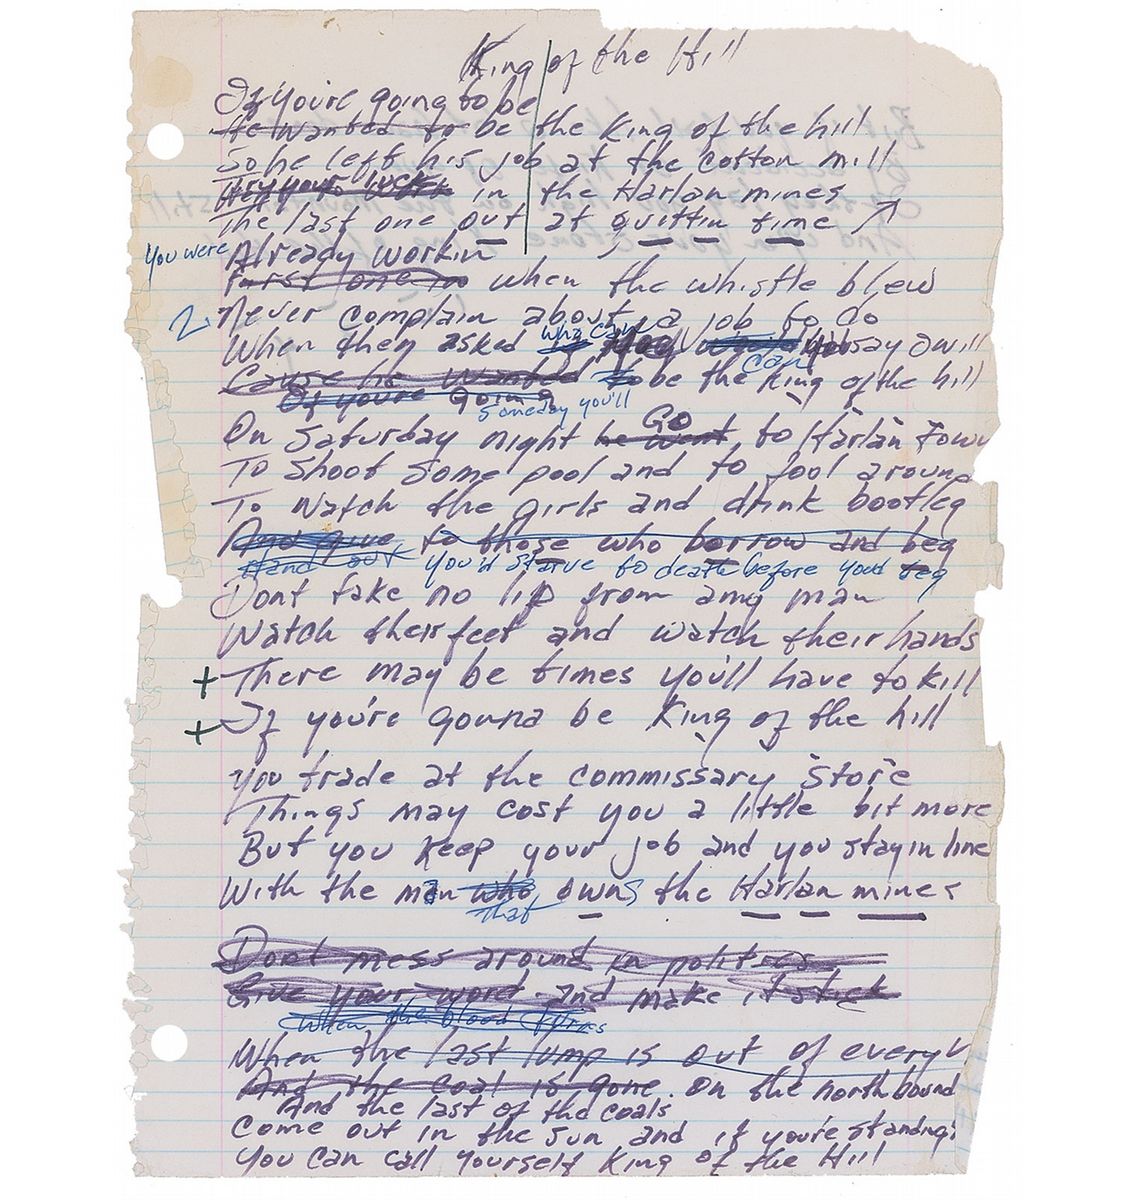 King of the Hill
If you're going to be
He wanted to be the King of the hill
So he left his job at the cotton mill
Try your luck in the Harlan mines
The last one out at quittin time
You were Already workin
First one in when the whistle blew
Never complain about a job to do
who can
When they asked say I will
can
Cause he wanted to be the King of the hill
If you're going
someday you'll
Go
On Saturday night he went to Harlan Town
To shoot some pool and to fool around
To watch the girls and drink bootleg
And give to those who borrow and beg
Hand out You'd starve to death before you'd beg
Dont take no lip from any man
Watch their feet and watch their hands
+ There may be times you'll have to kill
+ If you're gonna be King of the hill
You trade at the commissary store
Things may cost you a little bit more
But you keep your job and you stay in line
With the man who owns the Harlan mines
that
Dont mess around in politics
Give your word and make it stick
When the blood
When the last lump is out of every
And the coal is gone. On the northbound
And the last of the coals
Come out in the sun and if you're standing
You can call yourself King of the Hill